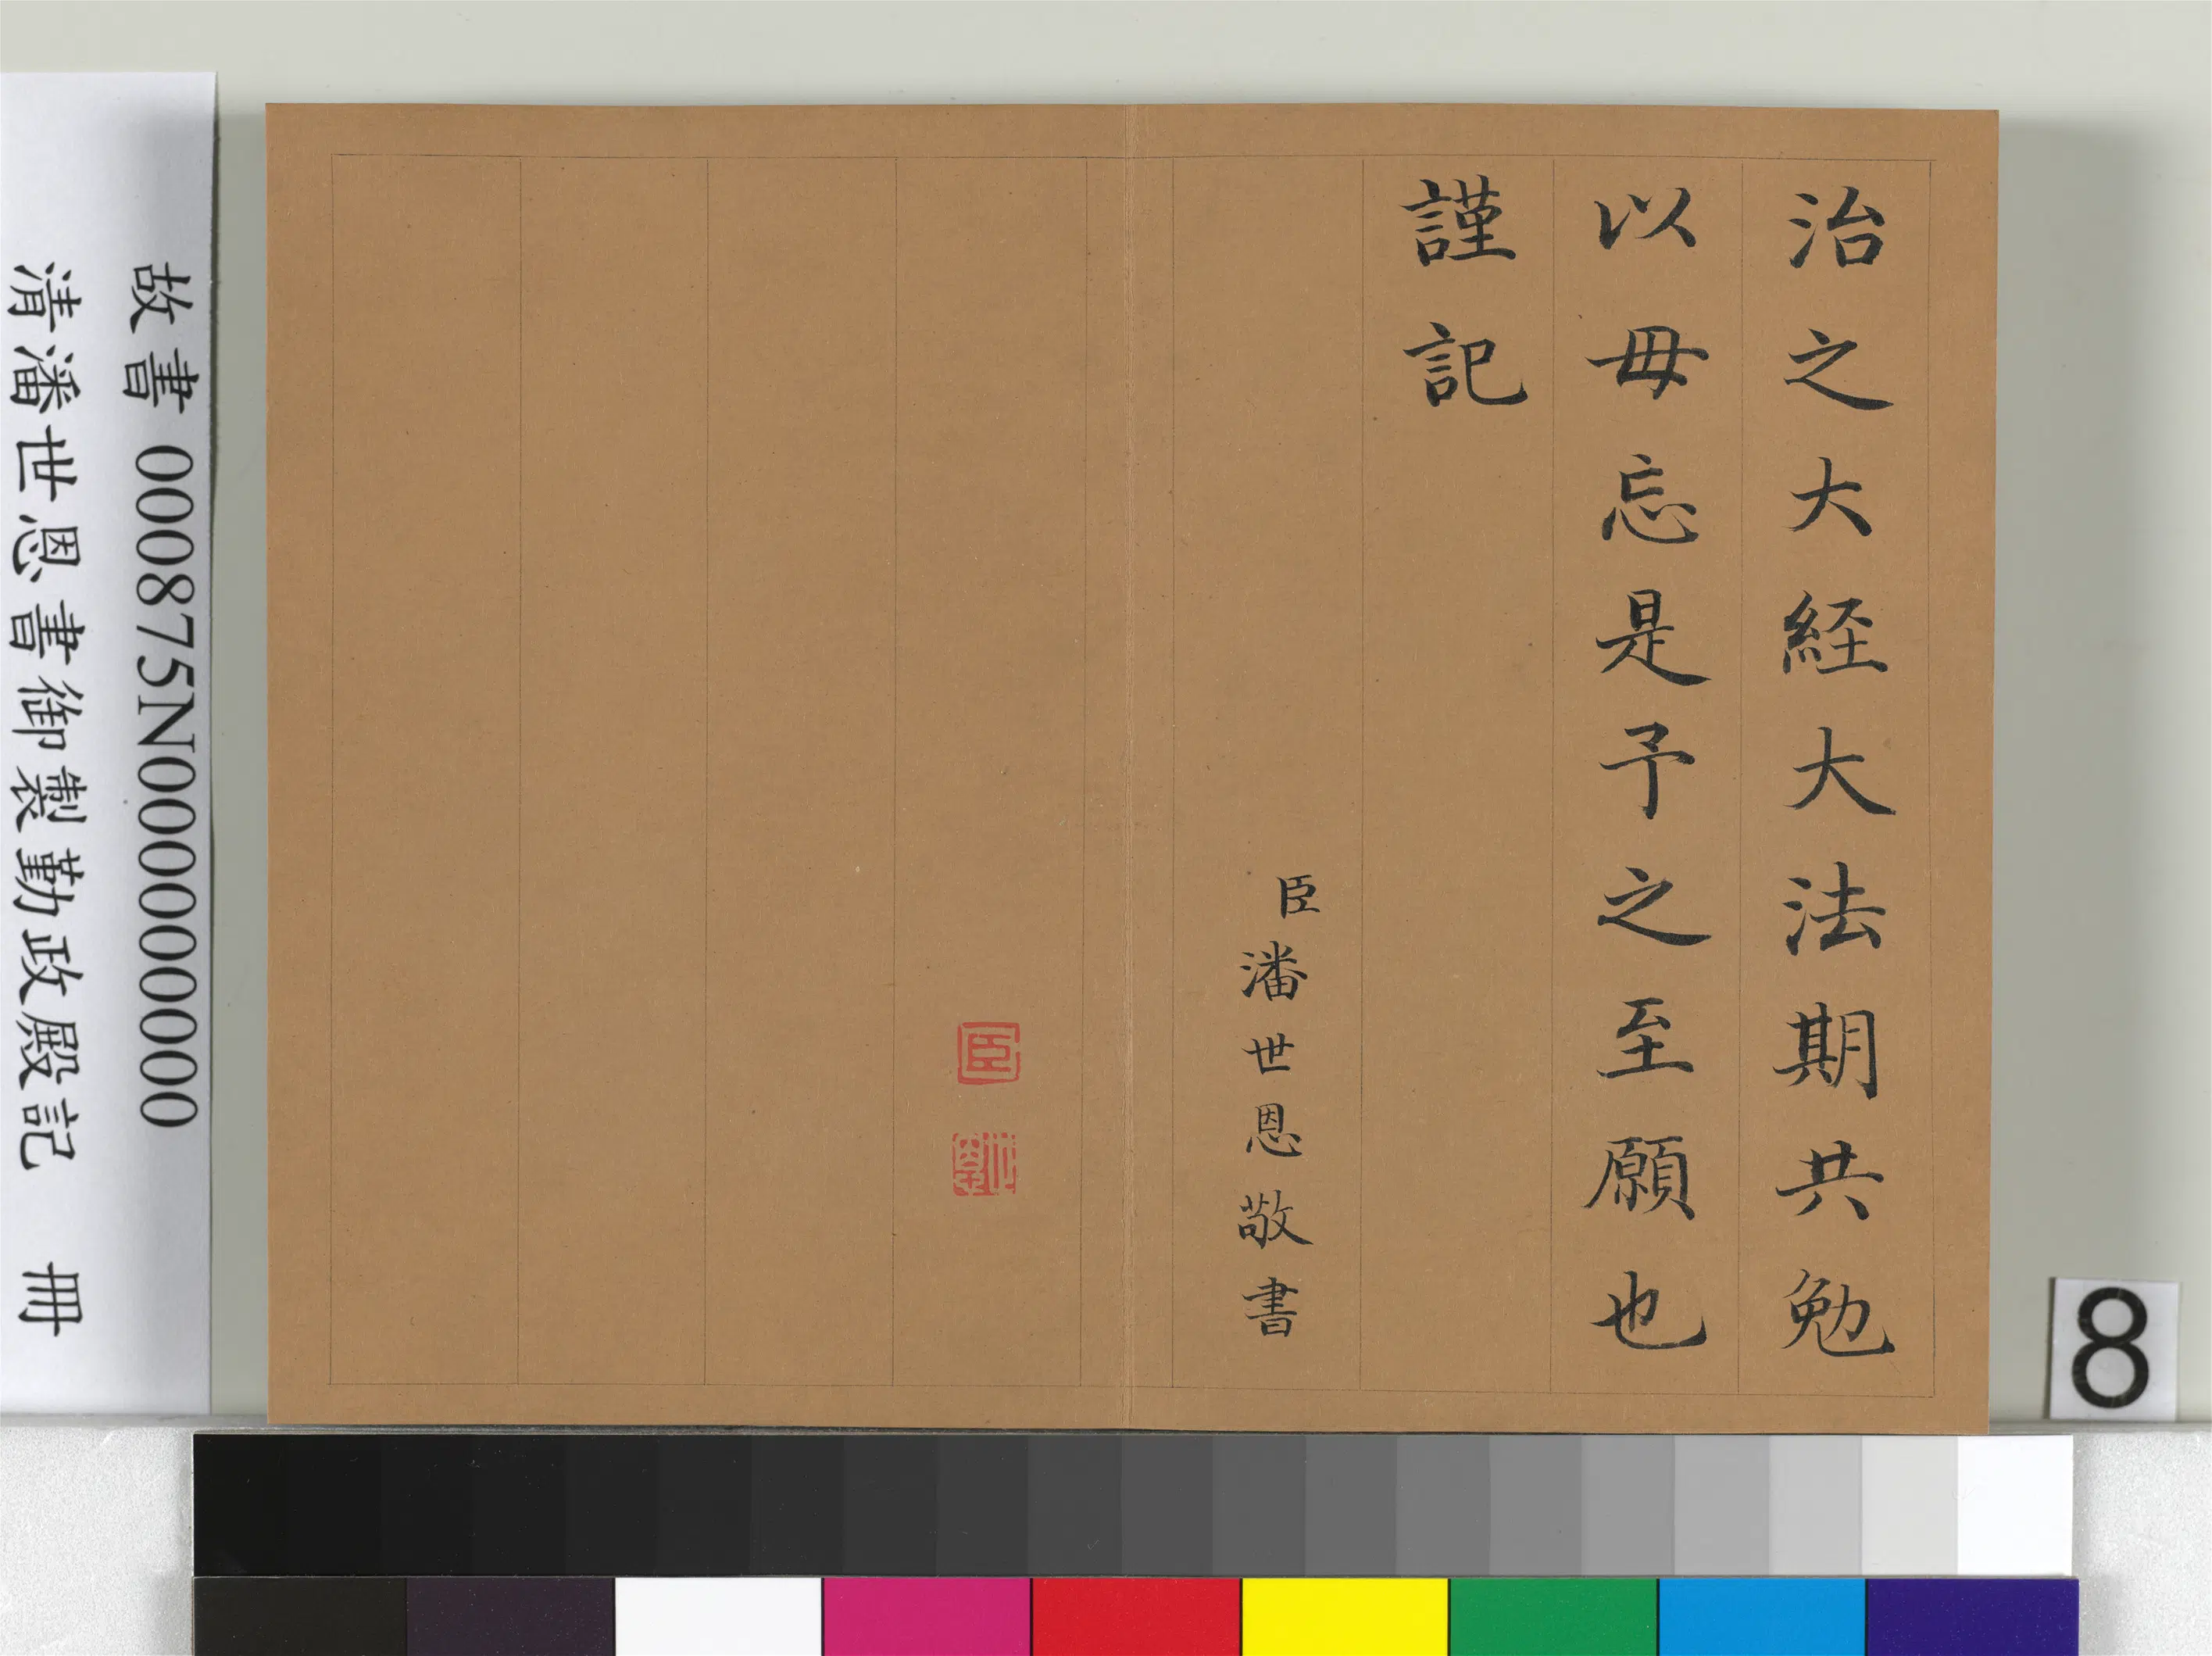 治之大経大法期共勉
以毋忘是予之至願也
謹記
臣潘世恩敬書
臣
故書 000875N000000000
清潘世恩書御製勤政殿記 冊
8